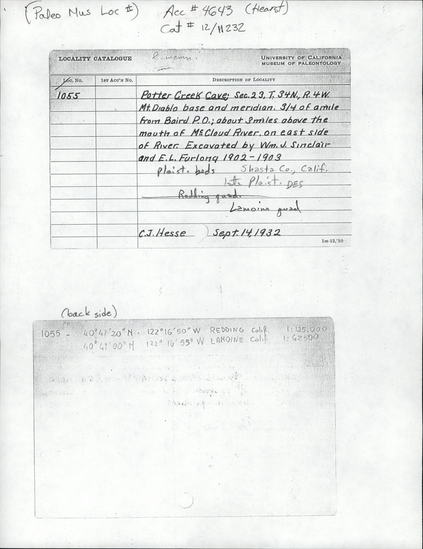 (Paleo Mus Loc #) Acc # 4643 (Hearst)
Cat # 12/11232
LOCALITY CATALOGUE UNIVERSITY OF CALIFORNIA
MUSEUM OF PALEONTOLOGY
Loc. No. 1st Acc'n No. DESCRIPTION OF LOCALITY
1055 Potter Creek Cave; Sec. 23, T. 34N., R. 4W.
Mt. Diablo base and meridian. 3/4 of a mile
from Baird P.O.; about 3 miles above the
mouth of McCloud River, on east side
of River. Excavated by Wm. J. Sinclair
and E.L. Furlong 1902-1903
Pleist. beds Shasta Co., Calif.
late Pleist. DES
Redding quad.
Lamoine quad
C.J. Hesse Sept. 14, 1932
(back side)
1055 - 40°47'20"N. 122°16'50"W REDDING Calif. 1:125,000
40°47'00"N 122° 16'55"W LAMOINE Calif. 1:62500